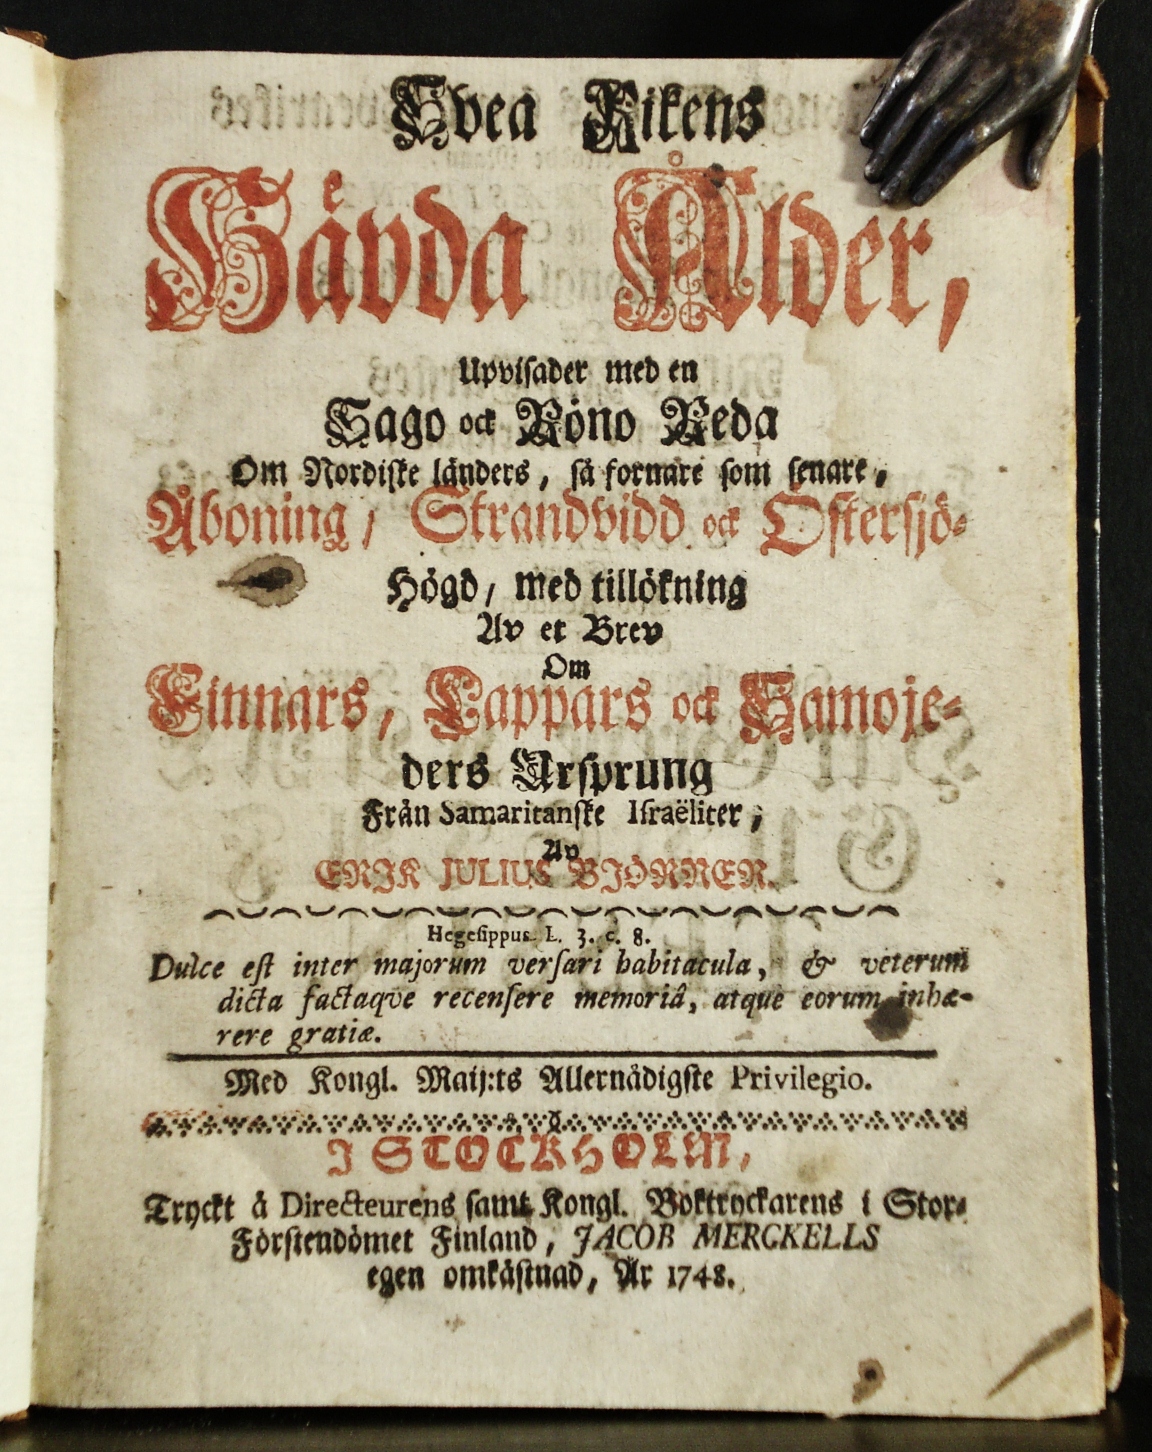 Svea Rikens
Hävda Ålder,
Upvisader med en
Sago ock Röno Reda
Om Nordiske länders, så fornare som senare,
Åboning, Strandvidd ock Östersjö-
Högd, med tillökning
Av et Brev
Om
Finnars, Lappars ock Samoje-
ders Ursprung
Från Samaritanske Israëliter,
Av
ERIK JULIUS BJÖRNER.
Hegesippus. L. 3. c. 8.
Dulce est inter majorum versari habitacula, & veterum
dicta factaqve recensere memoriâ, atque eorum inhæ-
rere gratiæ.
Med Kongl. Maij:ts Allernådigste Privilegio.
I STOCKHOLM,
Tryckt å Directeurens samt Kongl. Boktryckarens i Stor-
Förstendömet Finland, JACOB MERCKELLS
egen omkåstnad, År 1748.